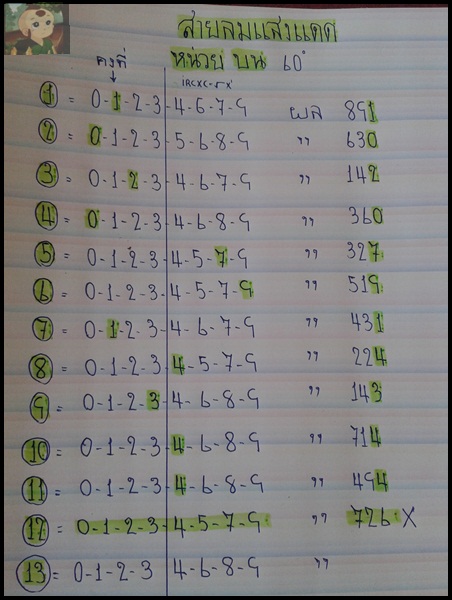 สายลมแสงแดด
ครูที่ หน่วย บน 60°
1 = 0-1-2-3-4-6-7-9 ผล 891
2 = 0-1-2-3-5-6-8-9 " 630
3 = 0-1-2-3-4-6-7-9 " 142
4 = 0-1-2-3-4-6-8-9 " 360
5 = 0-1-2-3-4-5-7-9 " 327
6 = 0-1-2-3-4-5-7-9 " 519
7 = 0-1-2-3-4-6-7-9 " 431
8 = 0-1-2-3-4-5-7-9 " 224
9 = 0-1-2-3-4-6-8-9 " 143
10 = 0-1-2-3-4-6-8-9 " 714
11 = 0-1-2-3-4-6-8-9 " 494
12 = 0-1-2-3-4-5-7-9 " 726 X
13 = 0-1-2-3 4-6-8-9 "